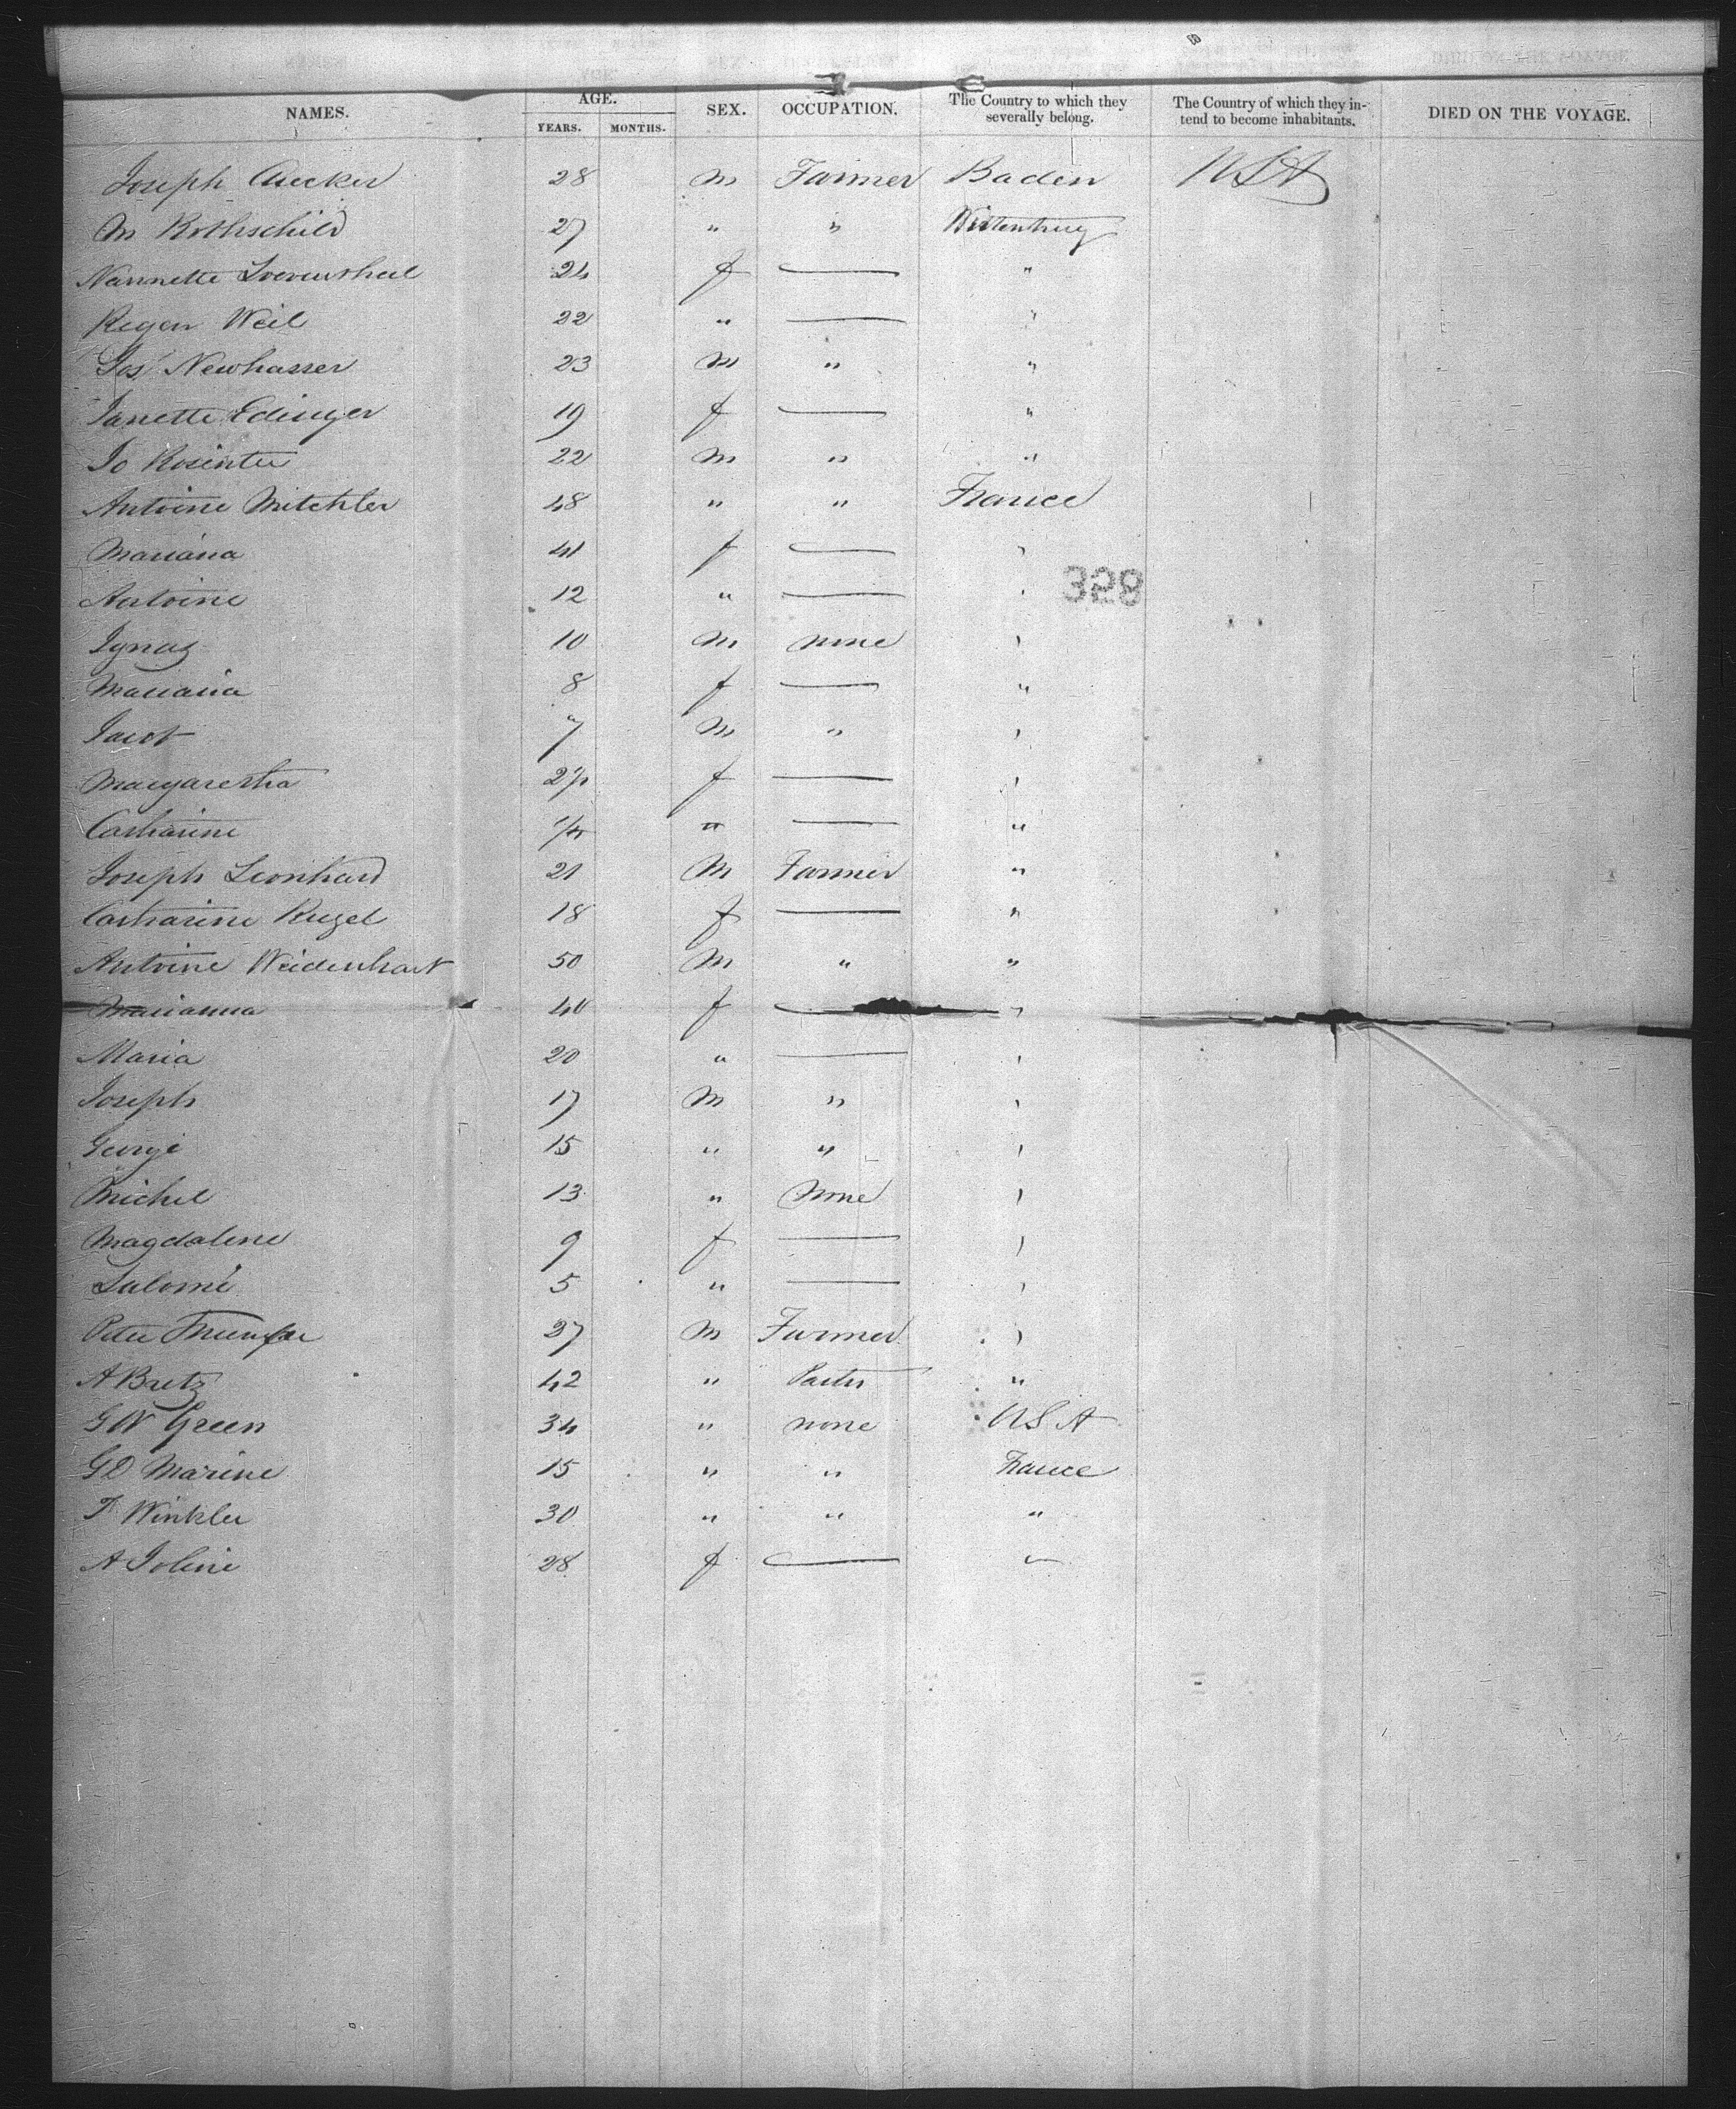 NAMES. AGE. YEARS. MONTHS. SEX. OCCUPATION. The Country to which they severally belong. The Country of which they intend to become inhabitants. DIED ON THE VOYAGE.
Joseph 28 m Farmer Baden USA
M Rothschild 27 " "
Nannette 24 f — "
Regen Weil 22 " — "
Jos Newhasser 23 m " "
Janette Edinger 19 f — "
Jo 22 m " "
Antoine Mitchler 48 " " France
Mariana 41 f — "
Antoine 12 " — "
Ignaz 10 m none "
Mariana 8 f — "
Jacob 7 m " "
Margaretha f — "
Catharine " — "
Joseph Leonhard 21 m Farmer "
Catharine Kugel 18 f — "
Antoine Weidenhart 50 m " "
Marianna 40 f — "
Maria 20 " — "
Joseph 17 m " "
George 15 " " "
Michel 13 " none "
Magdalene 9 f — "
Salomé 5 " — "
Peter 27 m Farmer "
A Bretz 42 " "
G W Green 34 " none USA
G D Marine 15 " " France
T Winkler 30 " " "
A Joline 28 f — "